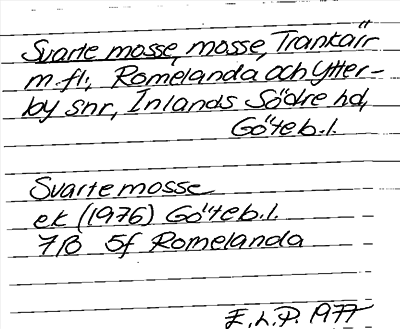 Svarte mosse, mosse, Trankärr
m.fl., Romelanda och Ytter-
by snr, Inlands Södre hd,
Göteb.l.
Svarte mosse
ek (1976) Göteb.l.
7B 5f Romelanda
E.L.P. 1977